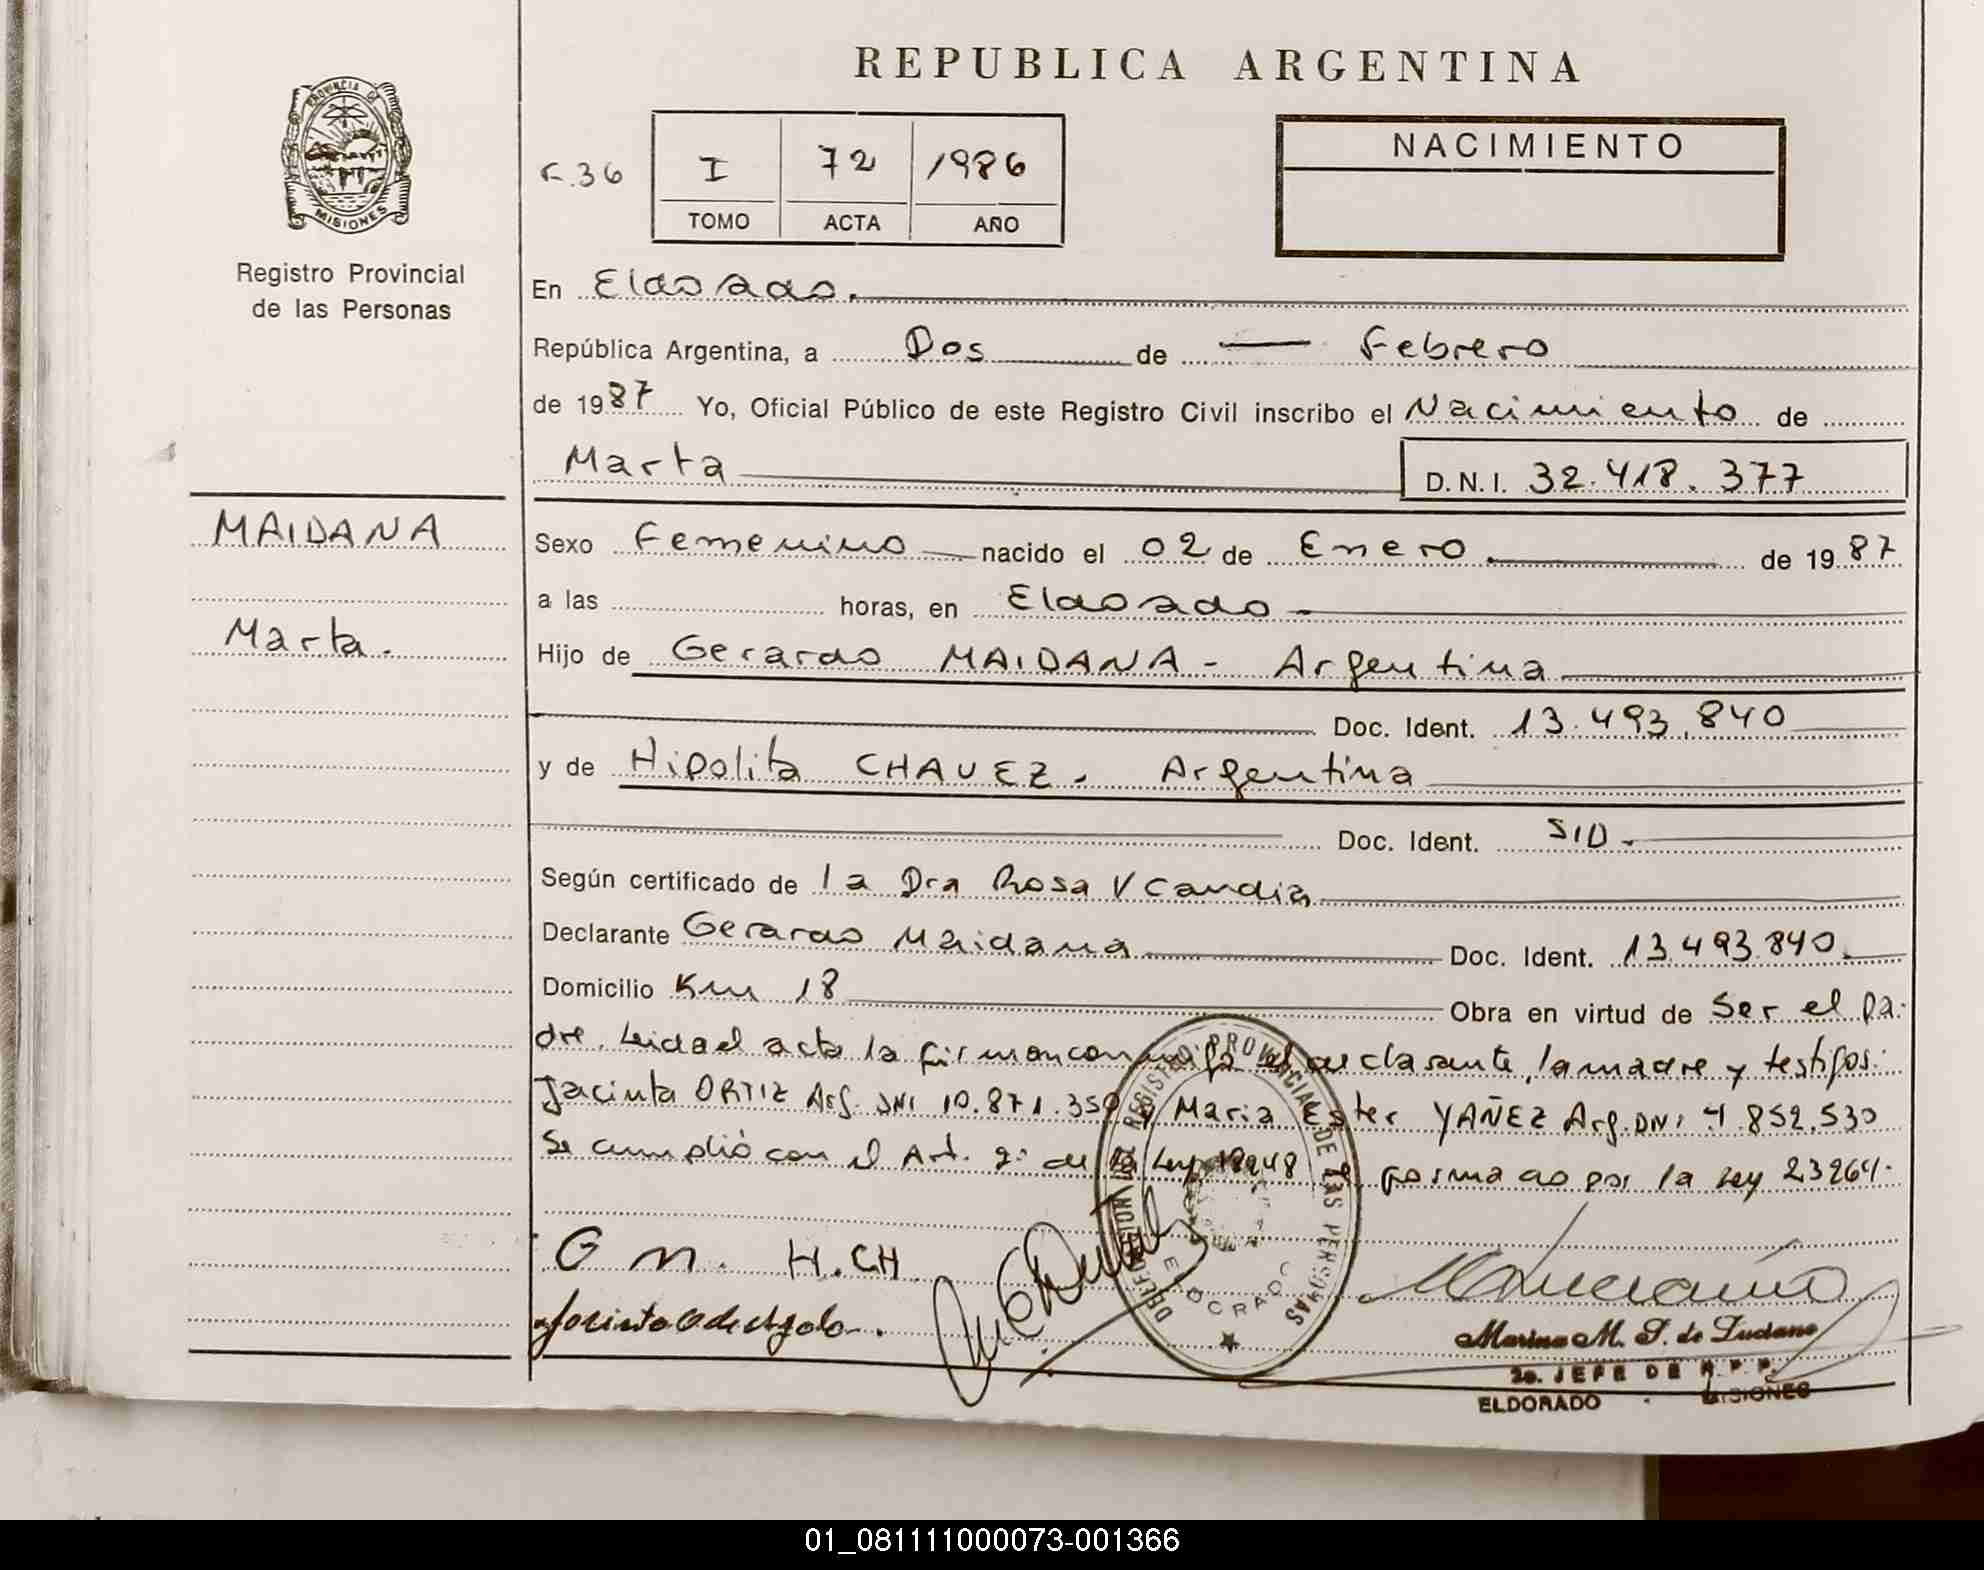 REPUBLICA ARGENTINA
PROVINCIA DE
MISIONES
Registro Provincial
de las Personas
F.36
I 72 1986
TOMO ACTA AÑO
NACIMIENTO
En Eldorado.
República Argentina, a Dos de — Febrero
de 1987 Yo, Oficial Público de este Registro Civil inscribo el Nacimiento de
Marta D.N.I. 32.418.377
MAIDANA
Marta.
Sexo Femenino nacido el 02 de Enero de 1987
a las horas, en Eldorado
Hijo de Gerardo MAIDANA - Argentina
Doc. Ident. 13.493.840
y de Hipolita CHAVEZ. Argentina
Doc. Ident. S/D.
Según certificado de la Dra Rosa V Candia
Declarante Gerardo Maidana Doc. Ident. 13.493.840.
Domicilio Km 18 Obra en virtud de Ser el pa-
dre. Leida el acta la firman conmigo el declarante, la madre y testigos:
Jacinta ORTIZ Arg. DNI 10.871.350 y Maria Ester YAÑEZ Arg. DNI 4.852.530
Se cumplió con el Art. 2º de la Ley 18248 Reformado por la Ley 23264.
G M. H.CH
DELEGACION DEL REGISTRO PROVINCIAL DE LAS PERSONAS
ELDORADO
Marina M. S. de Luciano
2o. JEFE DE R.P.P.
ELDORADO - MISIONES
01_081111000073-001366